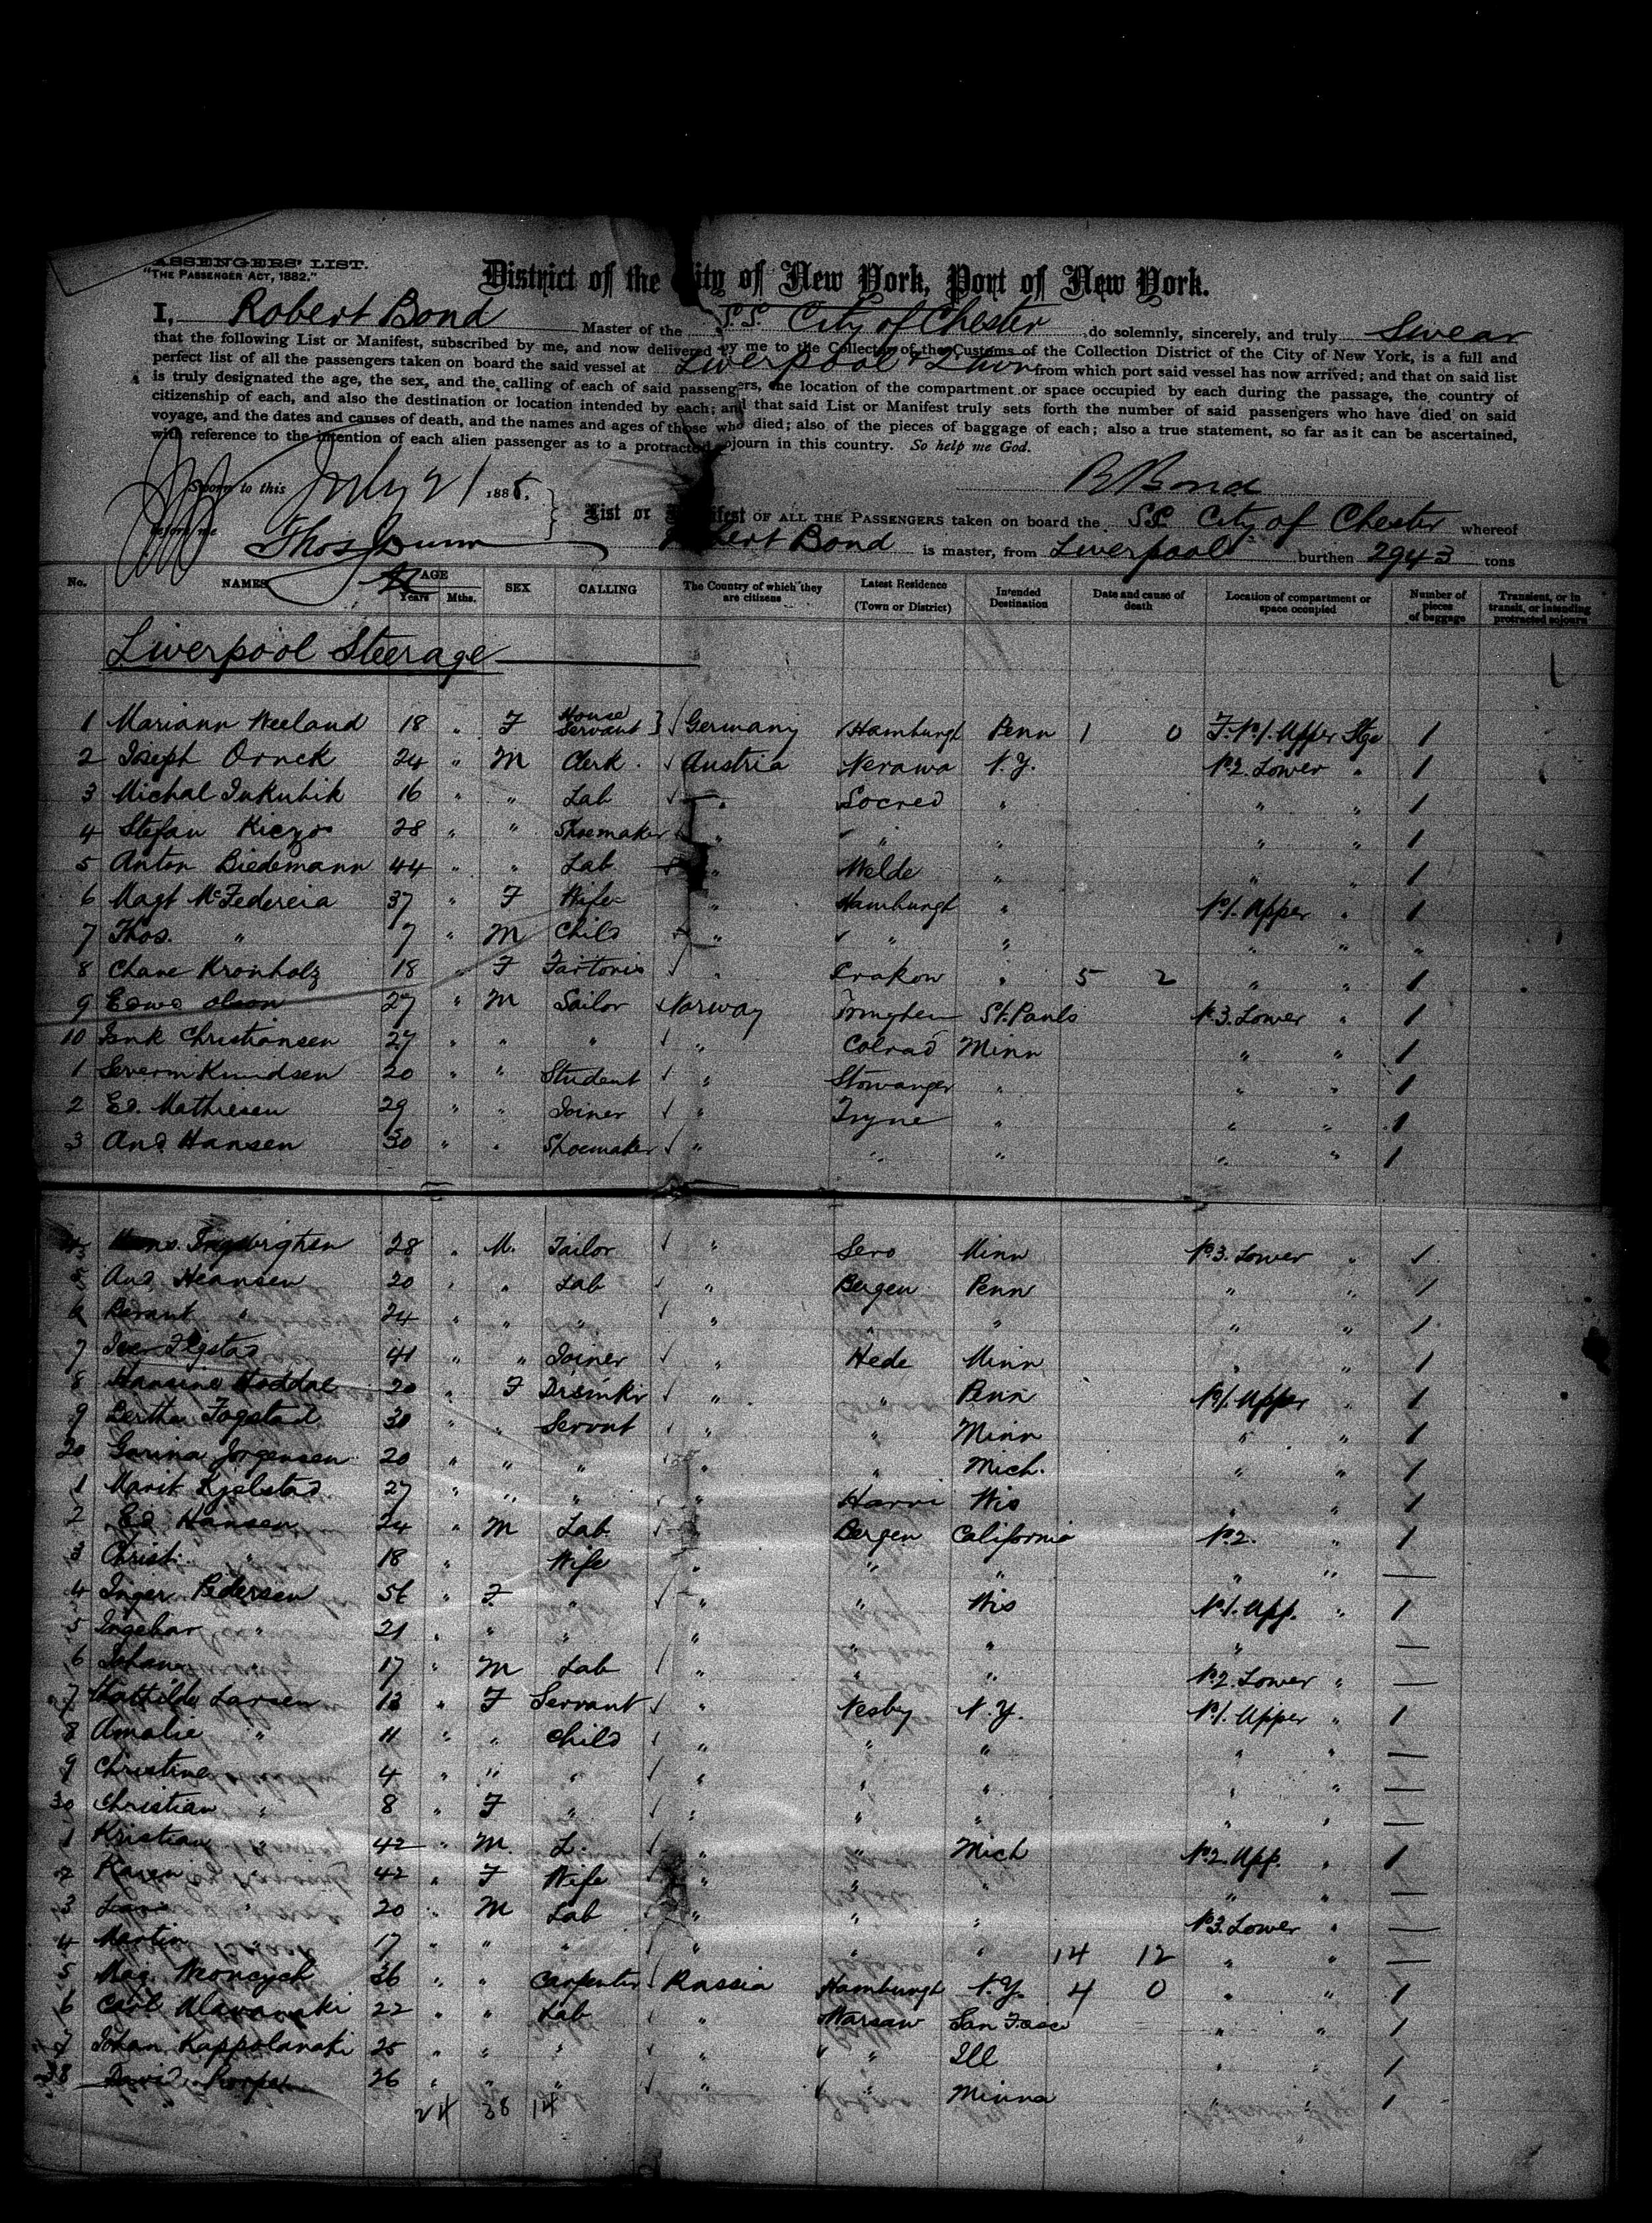 PASSENGERS' LIST.
"THE PASSENGER ACT, 1882."
District of the City of New York, Port of New York.
I, Robert Bond Master of the S.S. City of Chester do solemnly, sincerely, and truly Swear
that the following List or Manifest, subscribed by me, and now delivered by me to the Collector of the Customs of the Collection District of the City of New York, is a full and
perfect list of all the passengers taken on board the said vessel at Liverpool & from which port said vessel has now arrived; and that on said list
is truly designated the age, the sex, and the calling of each of said passengers, the location of the compartment or space occupied by each during the passage, the country of
citizenship of each, and also the destination or location intended by each; and that said List or Manifest truly sets forth the number of said passengers who have died on said
voyage, and the dates and causes of death, and the names and ages of those who died; also of the pieces of baggage of each; also a true statement, so far as it can be ascertained,
with reference to the intention of each alien passenger as to a protracted sojourn in this country. So help me God.
Sworn to this July 21 1885. R Bond
before me Thos Dunn
List or Manifest OF ALL THE PASSENGERS taken on board the S.S. City of Chester whereof
Robert Bond is master, from Liverpool burthen 2943 tons
No. NAMES AGE Years Mths. SEX CALLING The Country of which they are citizens Latest Residence (Town or District) Intended Destination Date and cause of death Location of compartment or space occupied Number of pieces of baggage Transient, or in transit, or intending protracted sojourn
Liverpool Steerage
1 Mariann Weeland 18 " F House Servant Germany Hamburgh Penn 1 0 F. No 1. Upper Stge 1
2 Joseph Ornek 24 " M Clerk Austria Nerawa N.Y. No 2. Lower " 1
3 Michal Jakubik 16 " " Lab " Socred " " " 1
4 Stefan Kiczo 28 " " Shoemaker " " " " " 1
5 Anton Biedemann 44 " " Lab " Welde " " " 1
6 Magt McFedereia 37 " F Wife " Hamburgh " No 1. Upper " 1
7 Thos. " 7 " M Child " " " " " "
8 Chane Kronholz 18 " F " Crakow " 5 2 " " 1
9 Edwd Olson 27 " M Sailor Norway St. Pauls No 3. Lower " 1
10 Christiansen 27 " " " " Colrad Minn " " 1
1 Severin Knudsen 20 " " Student " Stowanger " " " 1
2 Ed. Mathiesen 29 " " Joiner " Tryne " " " 1
3 And Hansen 30 " " Shoemaker " " " " " 1
4 Ingebrigtsen 28 " M. Tailor " Sero Minn No 3. Lower " 1
5 And. Heansen 20 " " Lab " Bergen Penn " " 1
6 " 24 " " " " " " " " 1
7 Iver Flgstad 41 " " Joiner " Hede Minn " " 1
8 Hansine Hoddal 20 " F " " Penn No 1. Upper " 1
9 Bertha Fogstad 30 " " Servnt " " Minn " " 1
20 Garina Jorgensen 20 " " " " " Mich. " " 1
1 Marit Kjelstad 27 " " " " Harvi Wis " " 1
2 Ed Hansen 24 " M Lab " Bergen California No 2. " 1
3 Christ. " 18 " Wife " " " " " —
4 Inger Pedersen 56 " F " " " Wis No 1. Upp. " 1
5 Ingebor " 21 " " " " " " " —
6 Johan " 17 " M Lab " " " No 2. Lower " —
7 Mathilde Larsen 13 " F Servant " Nesby N.Y. No 1. Upper " 1
8 Amalie " 11 " " Child " " " " " —
9 Christine " 4 " " " " " " " " —
30 Christian " 8 " F " " " " " " —
1 Kristian " 42 " M. L. " " Mich No 2. Upp. " 1
2 Karen " 42 " F Wife " " " " " —
3 " 20 " M Lab " " " No 3. Lower " —
4 Martin " 17 " " " " " " 14 12 " " —
5 36 " " Carpenter Russia Hamburgh N.Y. 4 0 " " 1
6 Carl 22 " " Lab " Warsaw San Fasco " " 1
7 Johan Kappolanski 25 " " " " " Ill " " 1
38 David 26 " " " " " Minna " " 1
24 38 14